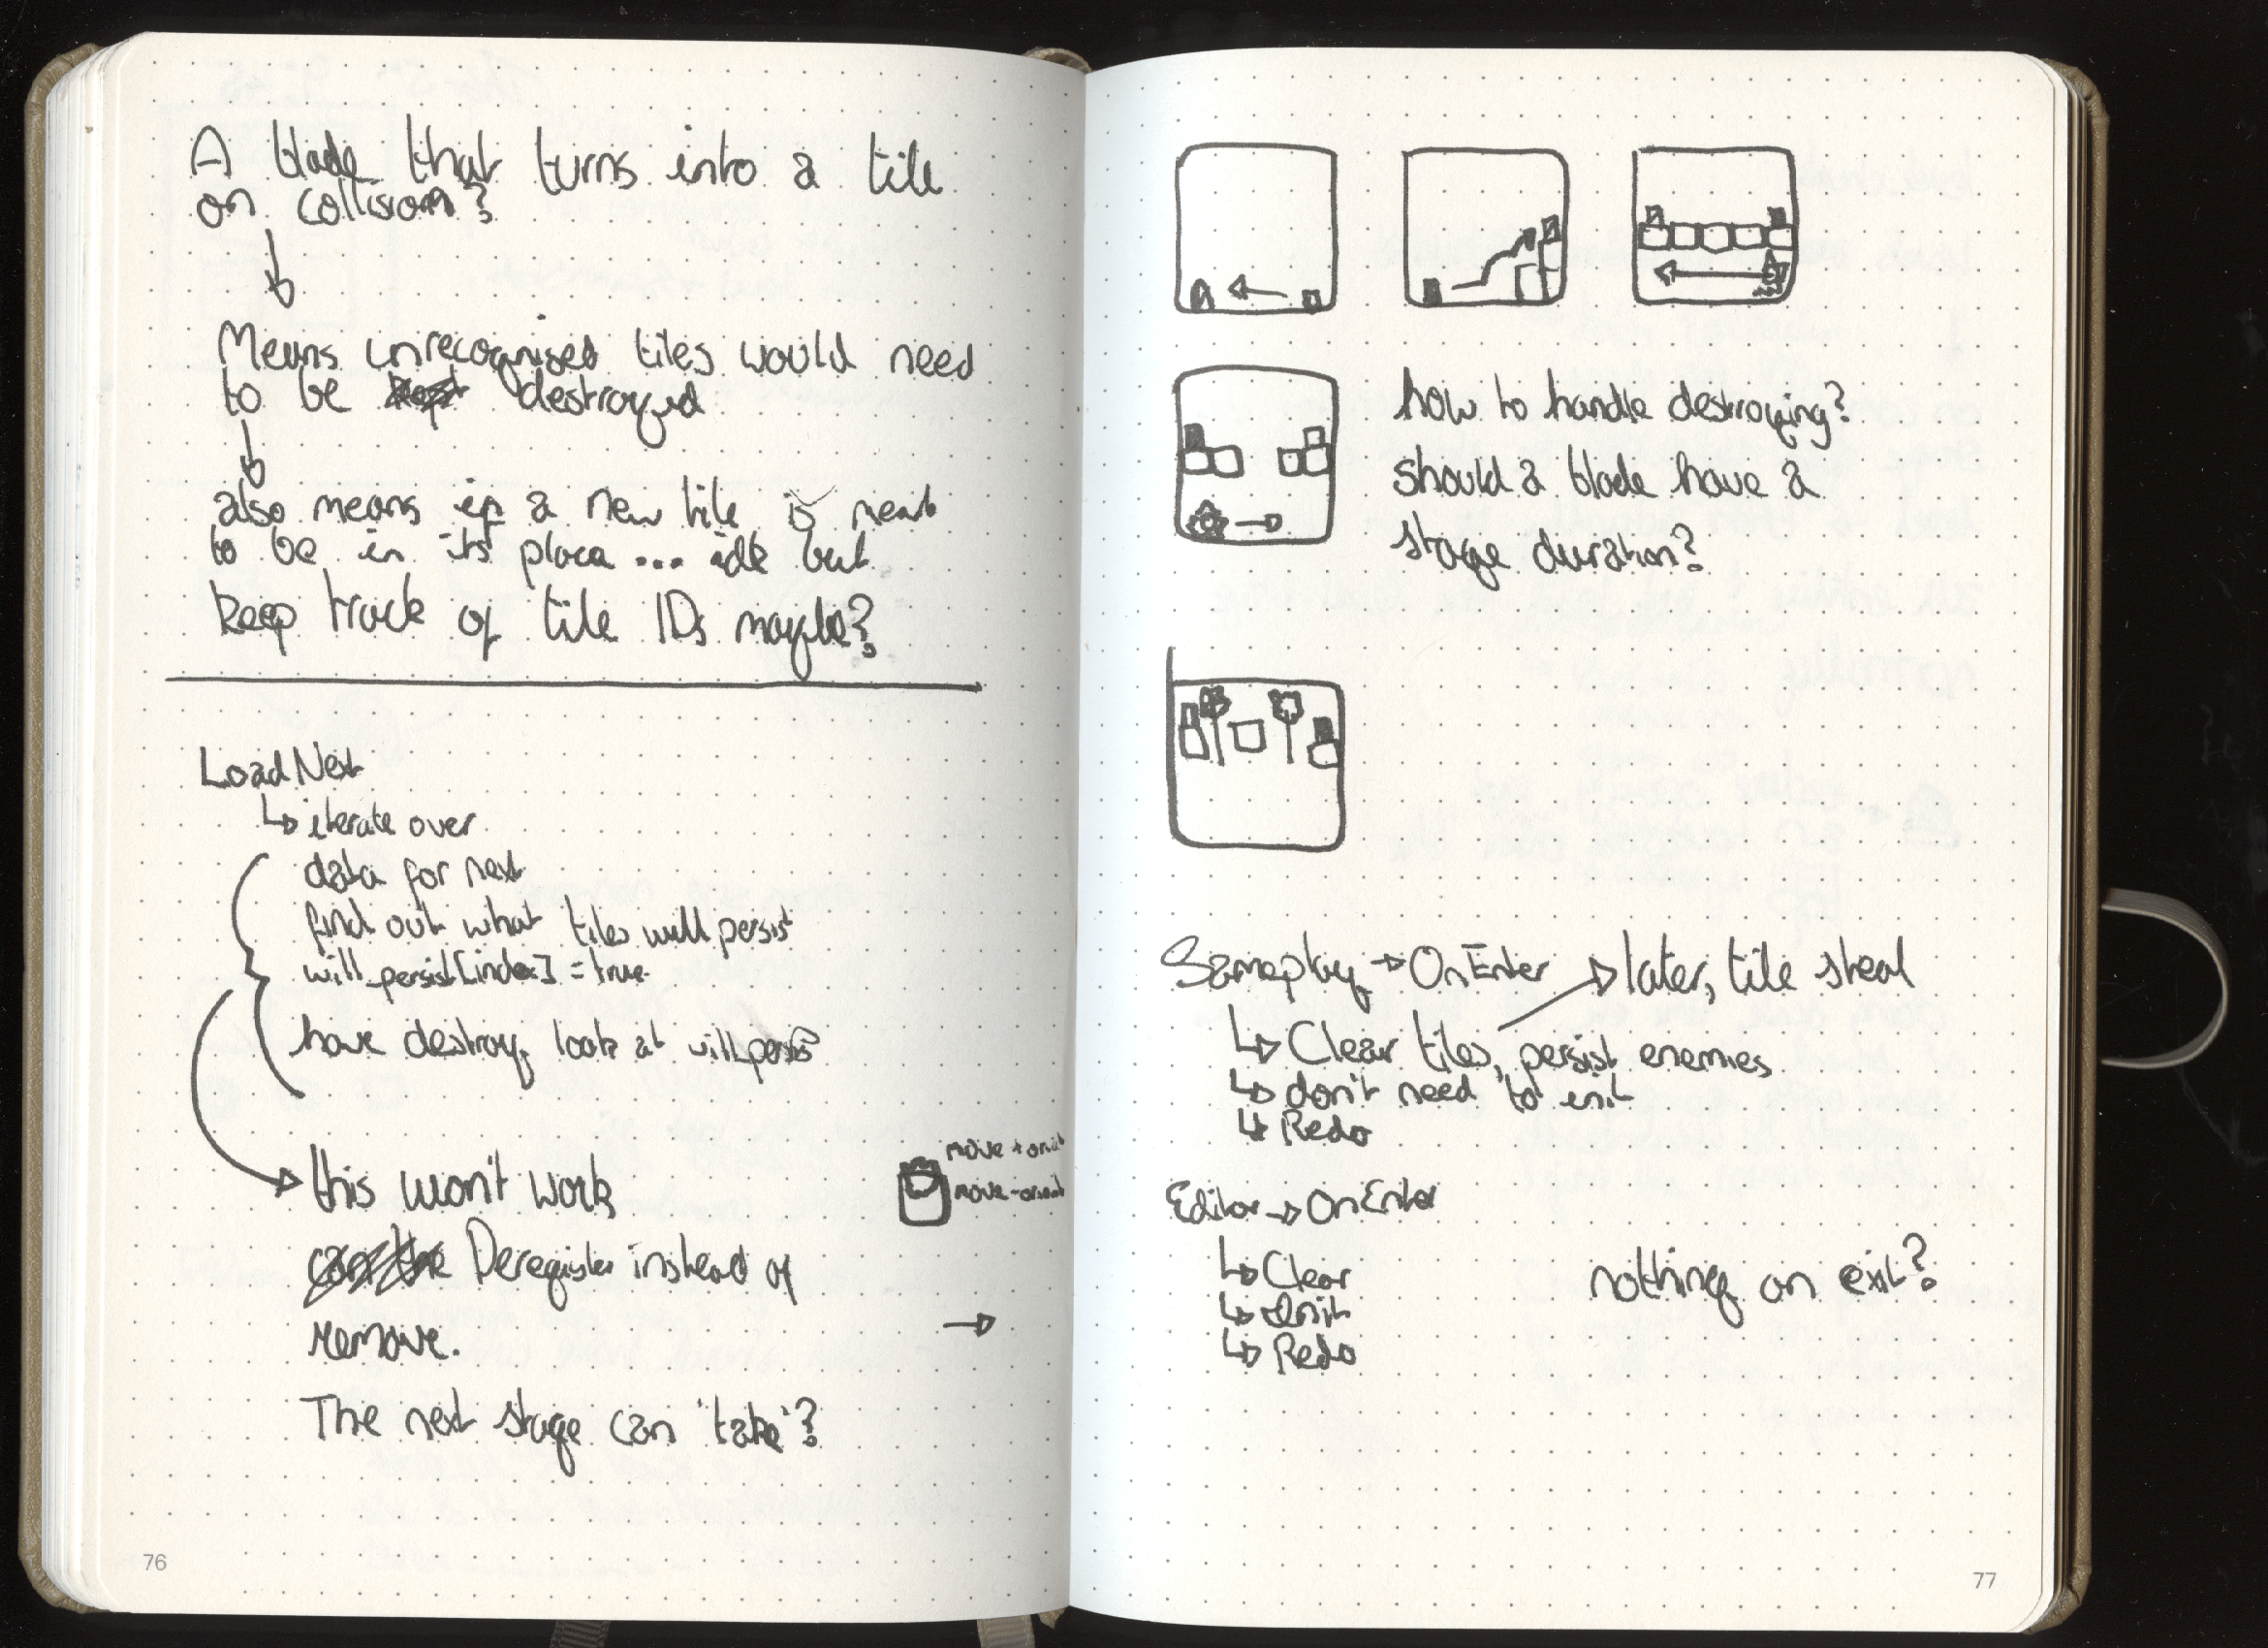 A blade that turns into a tile
on collision?
Means unrecognised tiles would need
to be destroyed
also means if a new tile is meant
to be in its place... idk but
keep track of tile IDs maybe?
LoadNext
iterate over
data for next
find out what tiles will persist
will_persist[index] = true
have destroy look at will_persist
this won't work
move + orient
move - orient
Deregister instead of
remove.
The next stage can 'take'?
76
how to handle destroying?
should a blade have a
stage duration?
Gameplay → OnEnter → later, tile steal
Clear tiles, persist enemies
don't need to init
Redo
Editor → OnEnter
Clear
Init
Redo
nothing on exit?
77